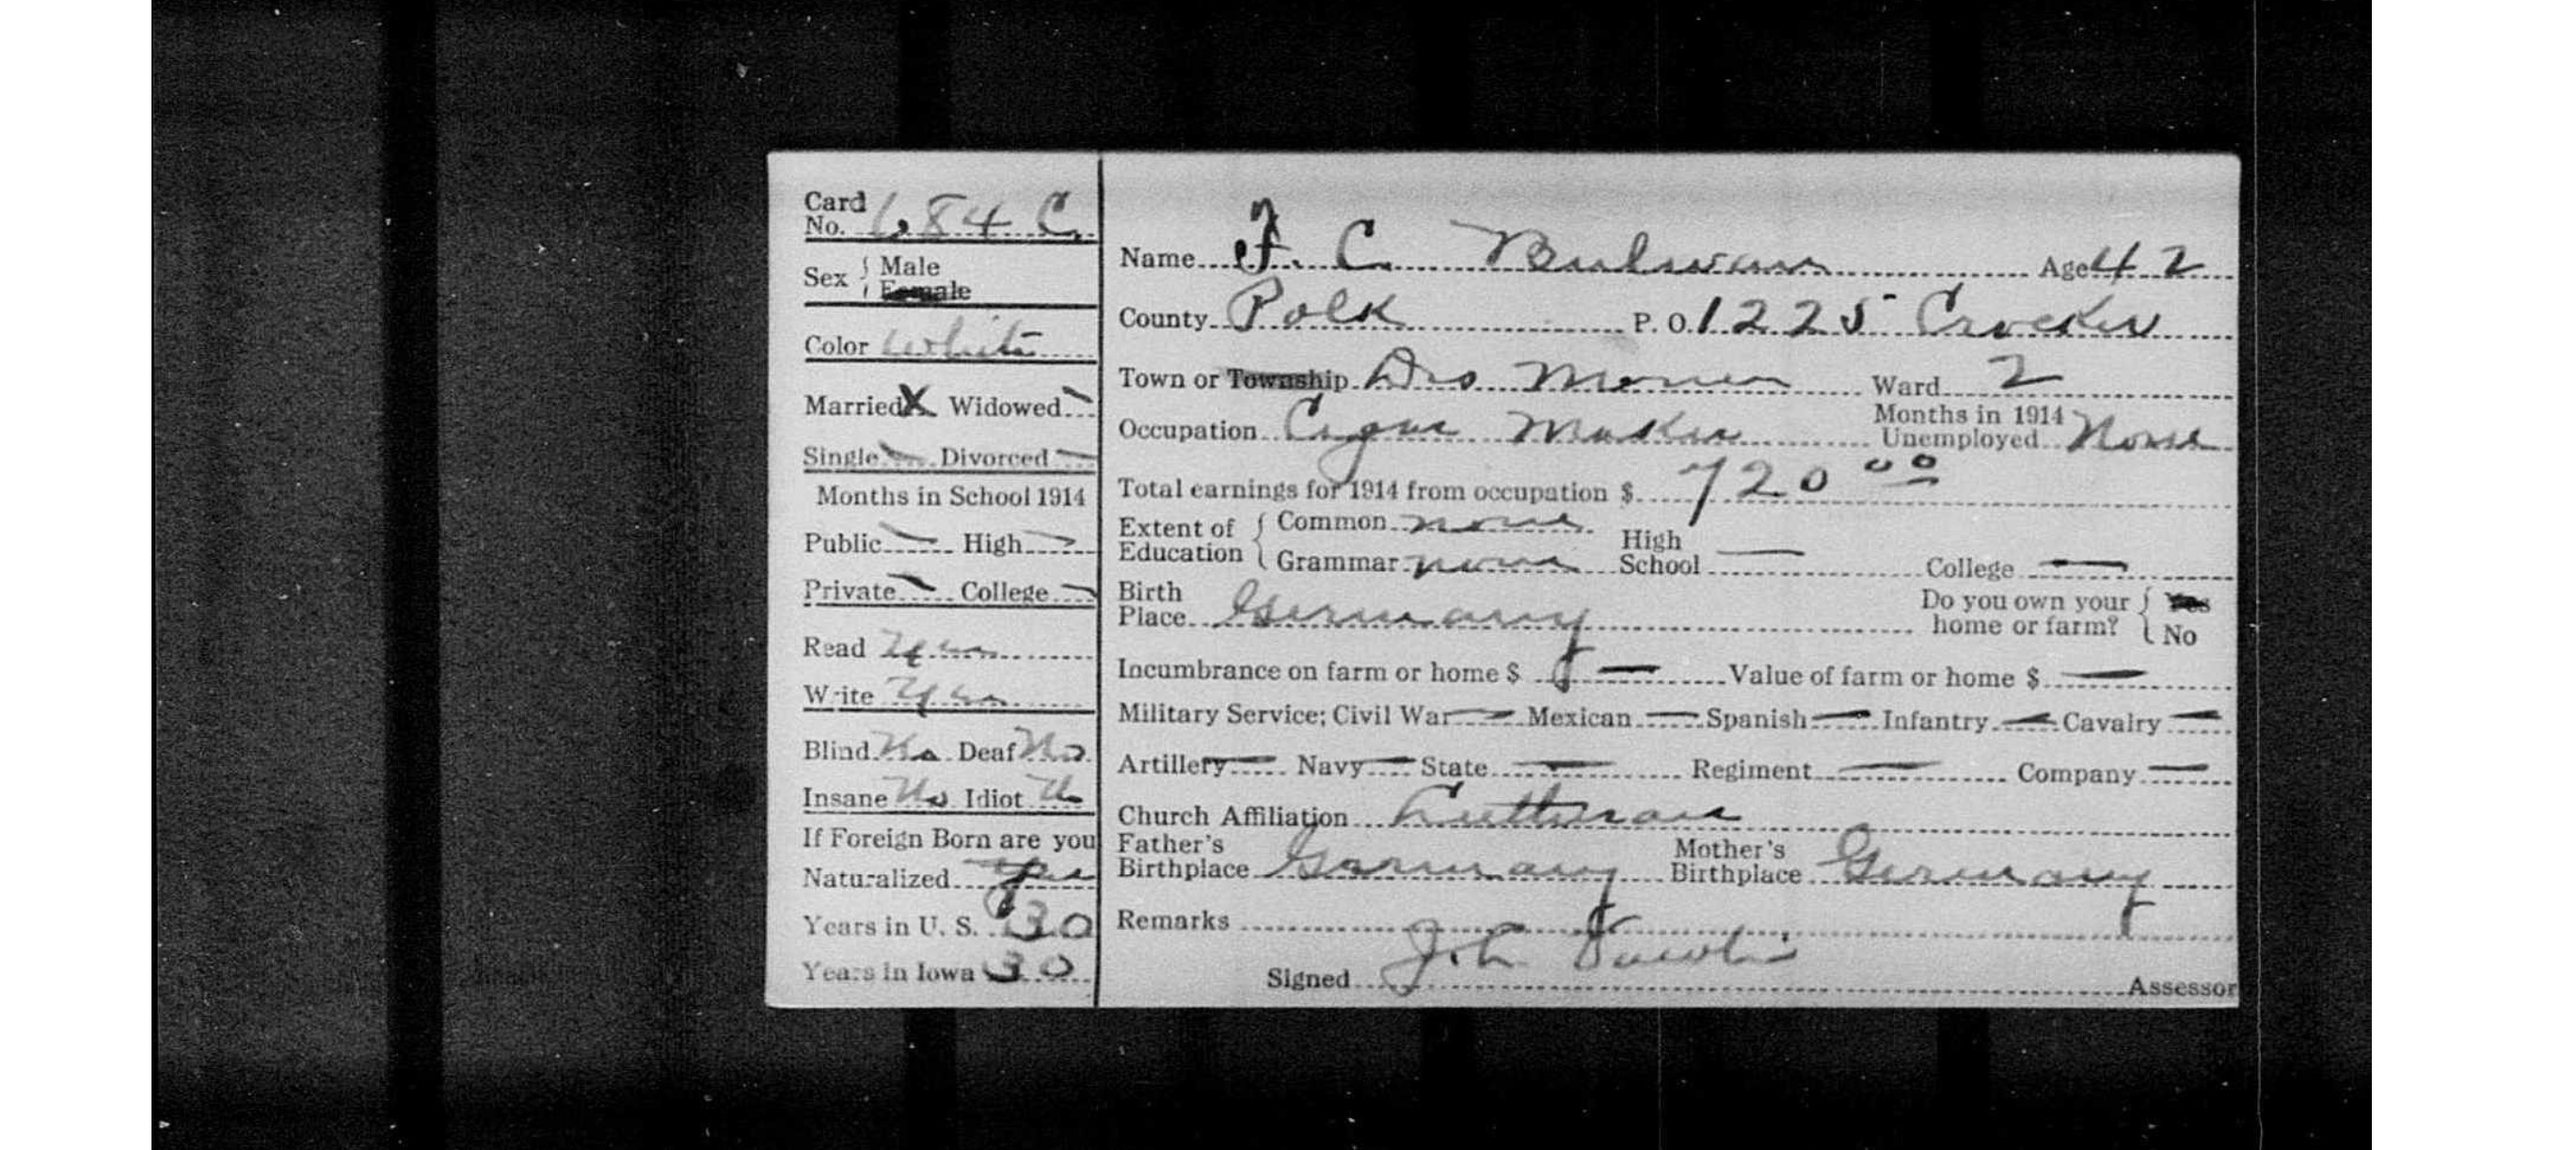 Card
No. 684 C.
Sex { Male
Female
Color White
Married X Widowed —
Single — Divorced —
Months in School 1914
Public — High —
Private — College —
Read Yes
Write Yes
Blind No Deaf No
Insane No Idiot No
If Foreign Born are you
Naturalized Yes
Years in U. S. 30
Years in Iowa 30
Name F. C. Age 42
County Polk P. O. 1225 Crocker
Town or Township Des Moines Ward 2
Occupation Cigar Maker Months in 1914 Unemployed None
Total earnings for 1914 from occupation $ 720 00
Extent of Education { Common none
Grammar none High School — College —
Birth Place Germany Do you own your home or farm? { Yes
No
Incumbrance on farm or home $ — Value of farm or home $ —
Military Service: Civil War — Mexican — Spanish — Infantry — Cavalry —
Artillery — Navy — State — Regiment — Company —
Church Affiliation Lutheran
Father's Birthplace Germany Mother's Birthplace Germany
Remarks
Signed Assessor